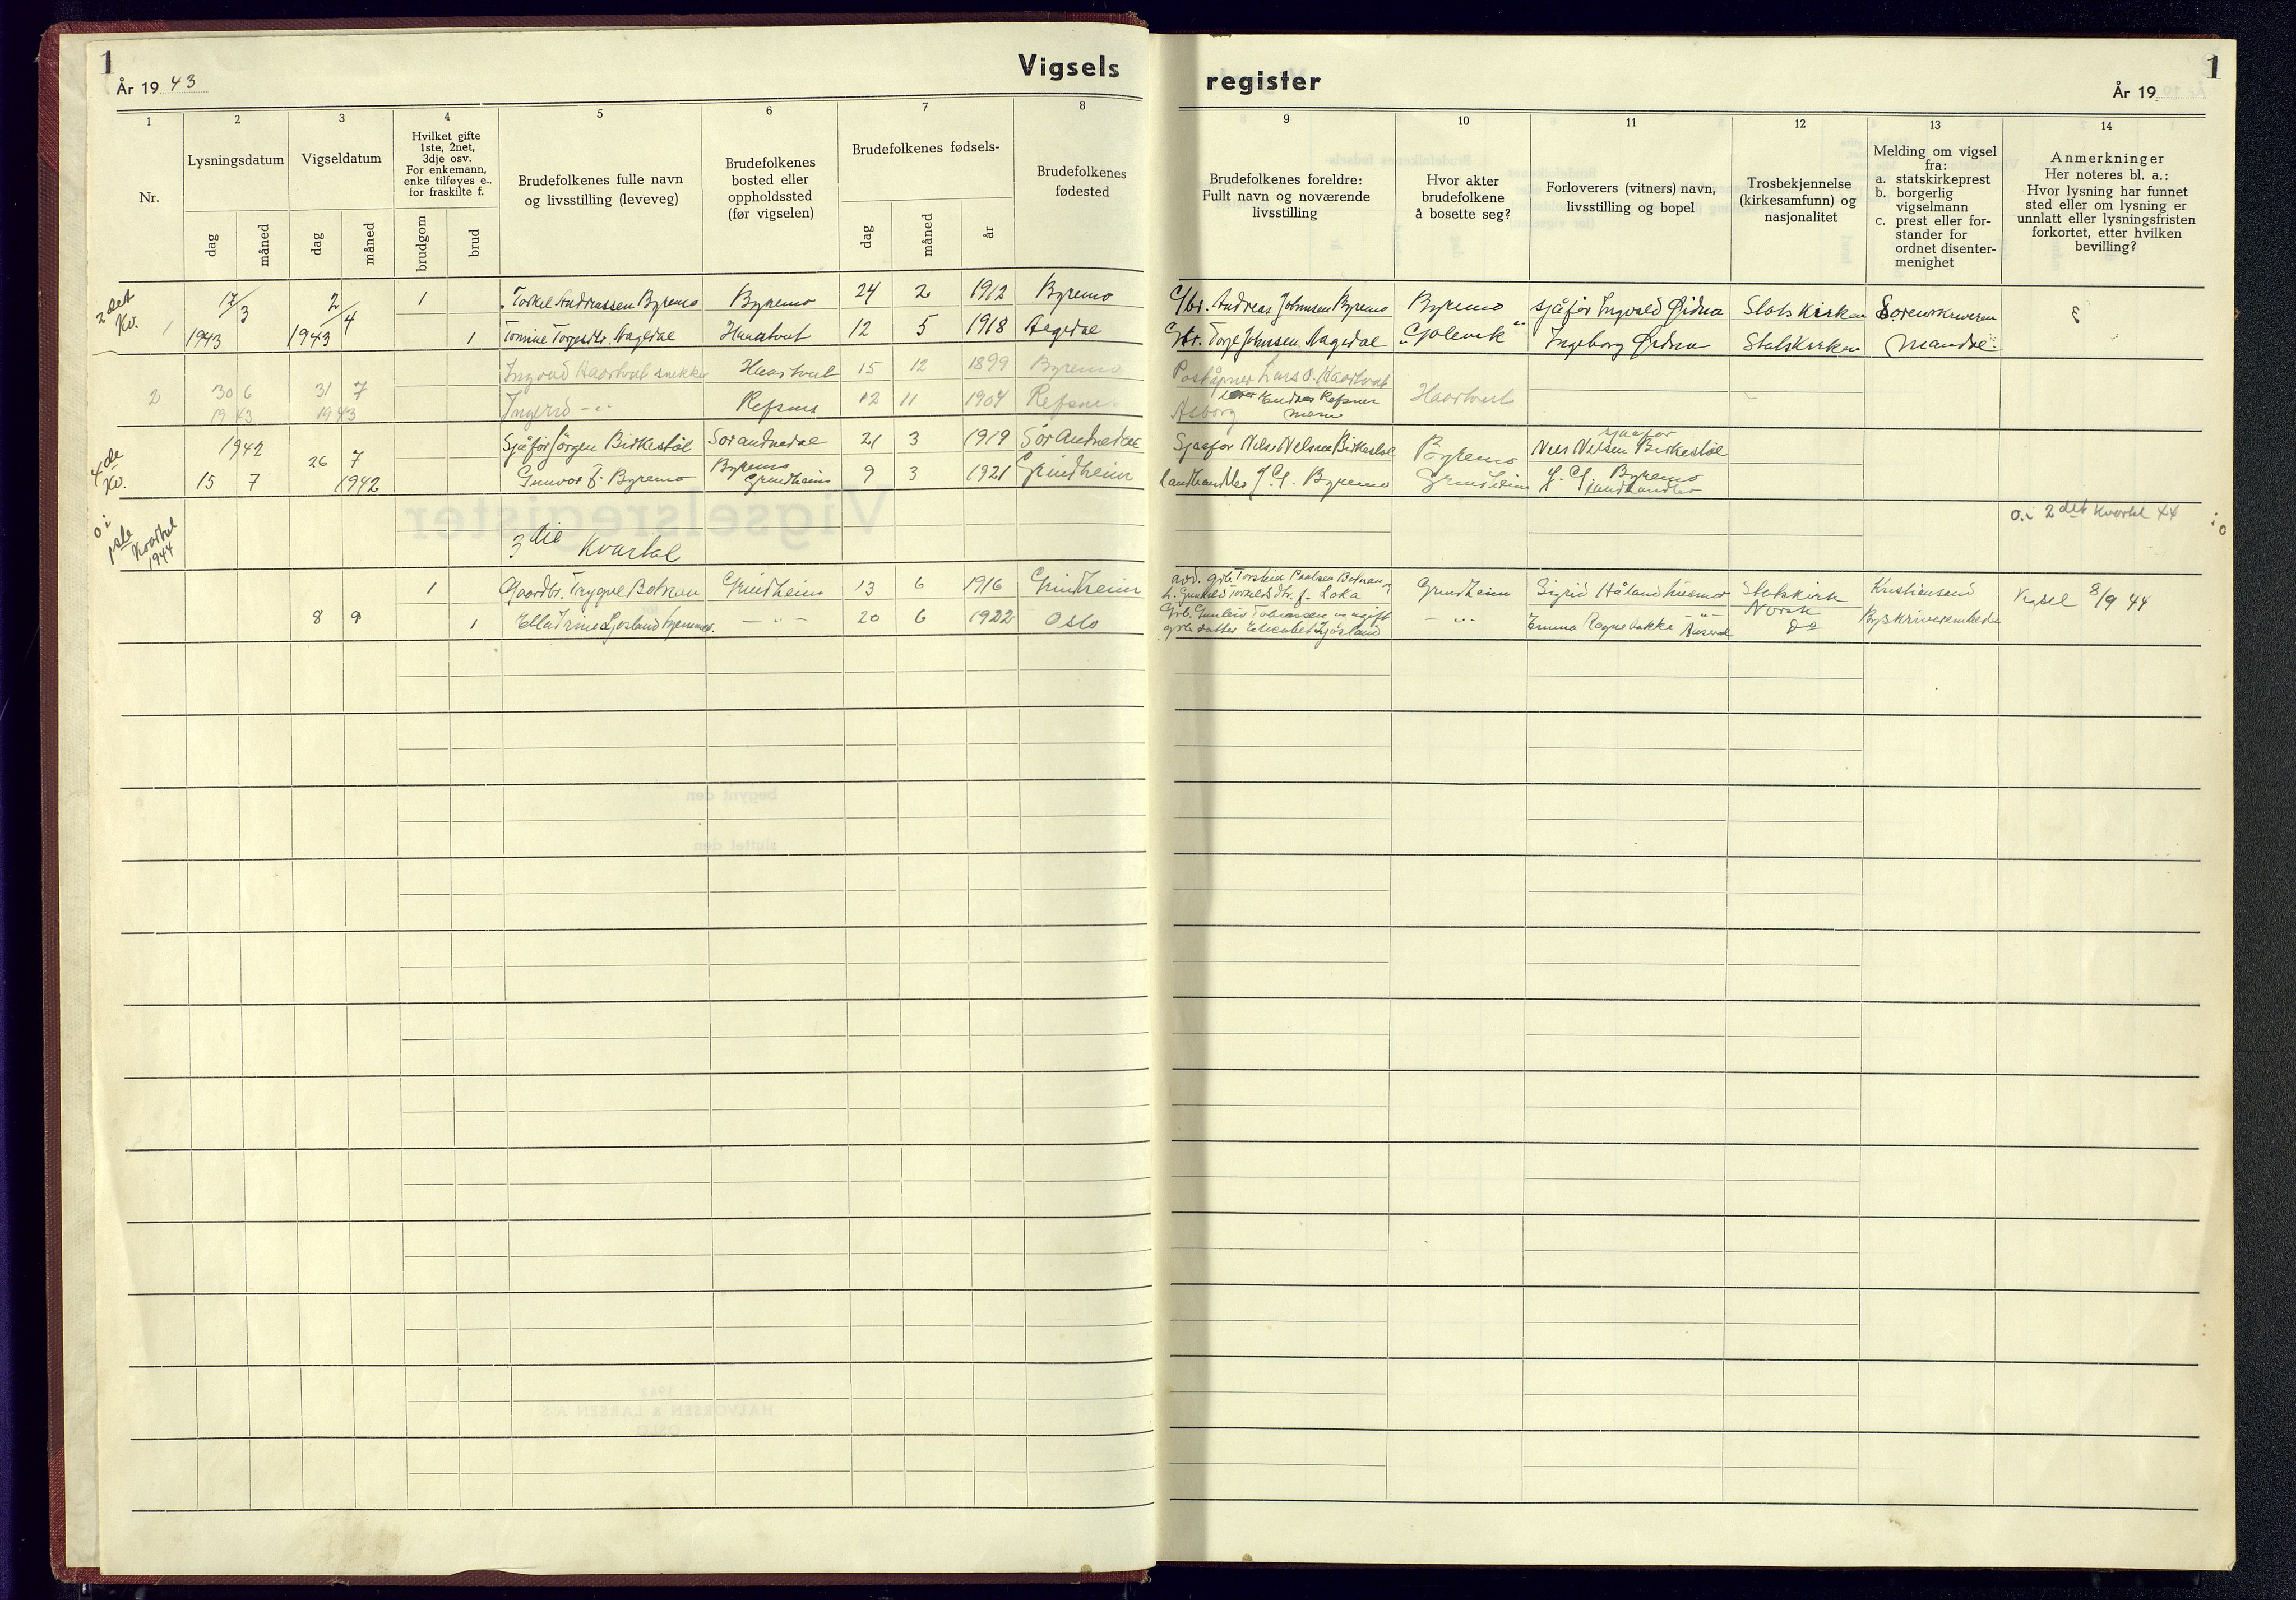 1
År 19 43
Vigsels
register
År 19
1
1
2
3
4
5
6
7
8
9
10
11
12
13
14
Nr.
Lysningsdatum
dag
måned
Vigseldatum
dag
måned
Hvilket gifte
1ste, 2net,
3dje osv.
For enkemann,
enke tilføyes e..
for fraskilte f.
brudgom
brud
Brudefolkenes fulle navn
og livsstilling (leveveg)
Brudefolkenes
bosted eller
oppholdssted
(før vigselen)
Brudefolkenes fødsels-
dag
måned
år
Brudefolkenes
fødested
Brudefolkenes foreldre:
Fullt navn og noværende
livsstilling
Hvor akter
brudefolkene
å bosette seg?
Forloverers (vitners) navn,
livsstilling og bopel
Trosbekjennelse
(kirkesamfunn) og
nasjonalitet
Melding om vigsel
fra:
a. statskirkeprest
b. borgerlig
vigselmann
c. prest eller for-
stander for
ordnet disenter-
menighet
Anmerkninger
Her noteres bl. a.:
Hvor lysning har funnet
sted eller om lysning er
unnlatt eller lysningsfristen
forkortet, etter hvilken
bevilling?
2det
Kv.
1 17/3 1943 2/4 1943
1 Torkel Andreassen Byremo Byremo 24 2 1912 Byremo Andreas Johnsen Byremo Byremo sjåfør Ingvald Øidna Statskirken Sorenskriveren
1 Tomine Torgesdtr. Aagedal Haartveit 12 5 1918 Aagedal Gbr. Torje Jensen Aagedal Ingeborg Øidna Statskirken Mandal
2 30 6 1943 31 7 1943
Ingvald Haartveit snekker Haartveit 15 12 1899 Byremo Poståpner Lars O. Haartveit Haartveit
Ingerid -"- Refsnes 12 11 1904 Refsnes
Asborg
4de
Kv.
1942
15 7
26 7
1942
Sjåfør Jörgen Birkestöl Sör Audnedal 21 3 1919 Sör Audnedal Sjaafør Nils Nelsen Birkestöl Byremo Nils Nelsen Birkestöl
sjaafør
Gunvor J. Byremo Byremo
Grindheim 9 3 1921 Grindheim Landhandler J. G. Byremo Grindheim J. G. Byremo
Landhandler
0 i
1ste
Kvartal
1944
0 i 2det Kvartal 44
3die Kvartal
8 9
1 Gaardbr. Trygve Botnan Grindheim 13 6 1916 Grindheim Grindheim Sigrid Håland husmor Statskirk Kristiansand Vigsel 8/9 44
Norsk
1 Ella Trine Ljosland -"- 20 6 1922 Oslo -"- Emma Ragne Bakke do Byskriverembede